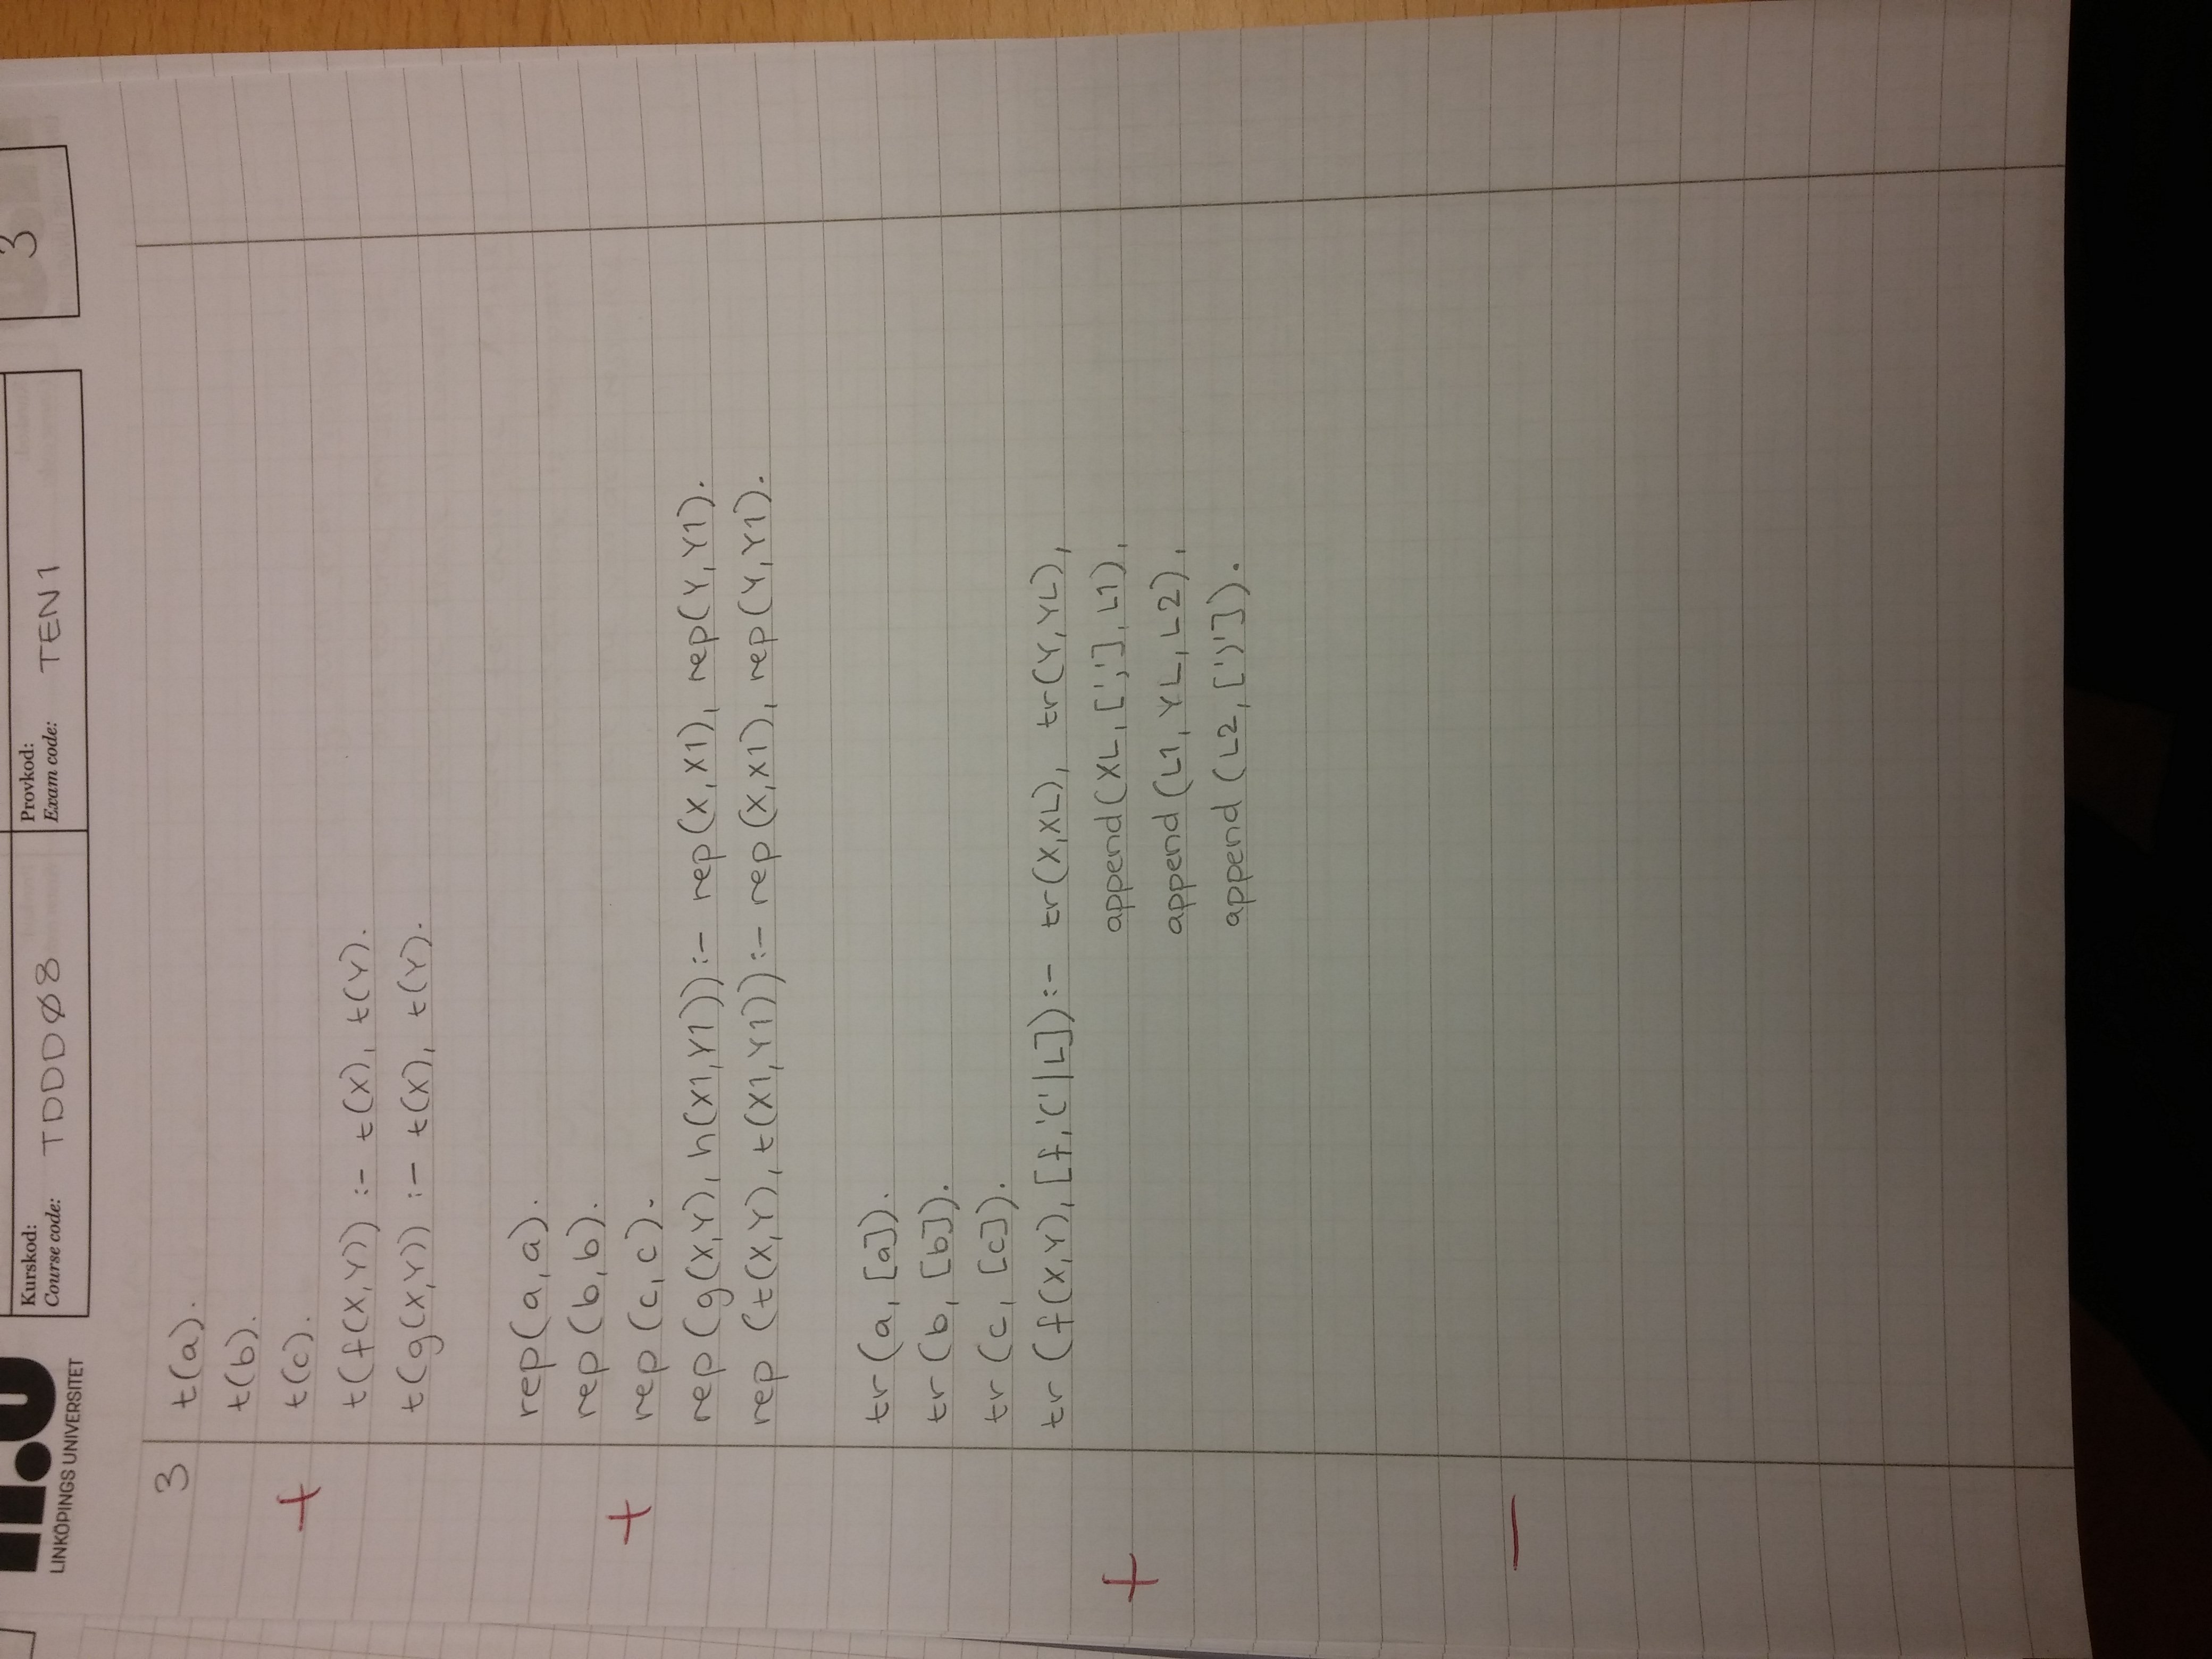 LINKÖPINGS UNIVERSITET
Kurskod:
Course code: TDDD08
Provkod:
Exam code: TEN1
3
3 t(a).
t(b).
+ t(c).
t(f(X,Y)) :- t(X), t(Y).
t(g(X,Y)) :- t(X), t(Y).
rep(a,a).
rep(b,b).
+ rep(c,c).
rep(g(X,Y), h(X1,Y1)) :- rep(X,X1), rep(Y,Y1).
rep(t(X,Y), t(X1,Y1)) :- rep(X,X1), rep(Y,Y1).
tr(a, [a]).
tr(b, [b]).
tr(c, [c]).
tr(f(X,Y), [f,'('|L]) :- tr(X,XL), tr(Y,YL),
+ append(XL, [','], L1),
append(L1, YL, L2),
append(L2, [')']).
-